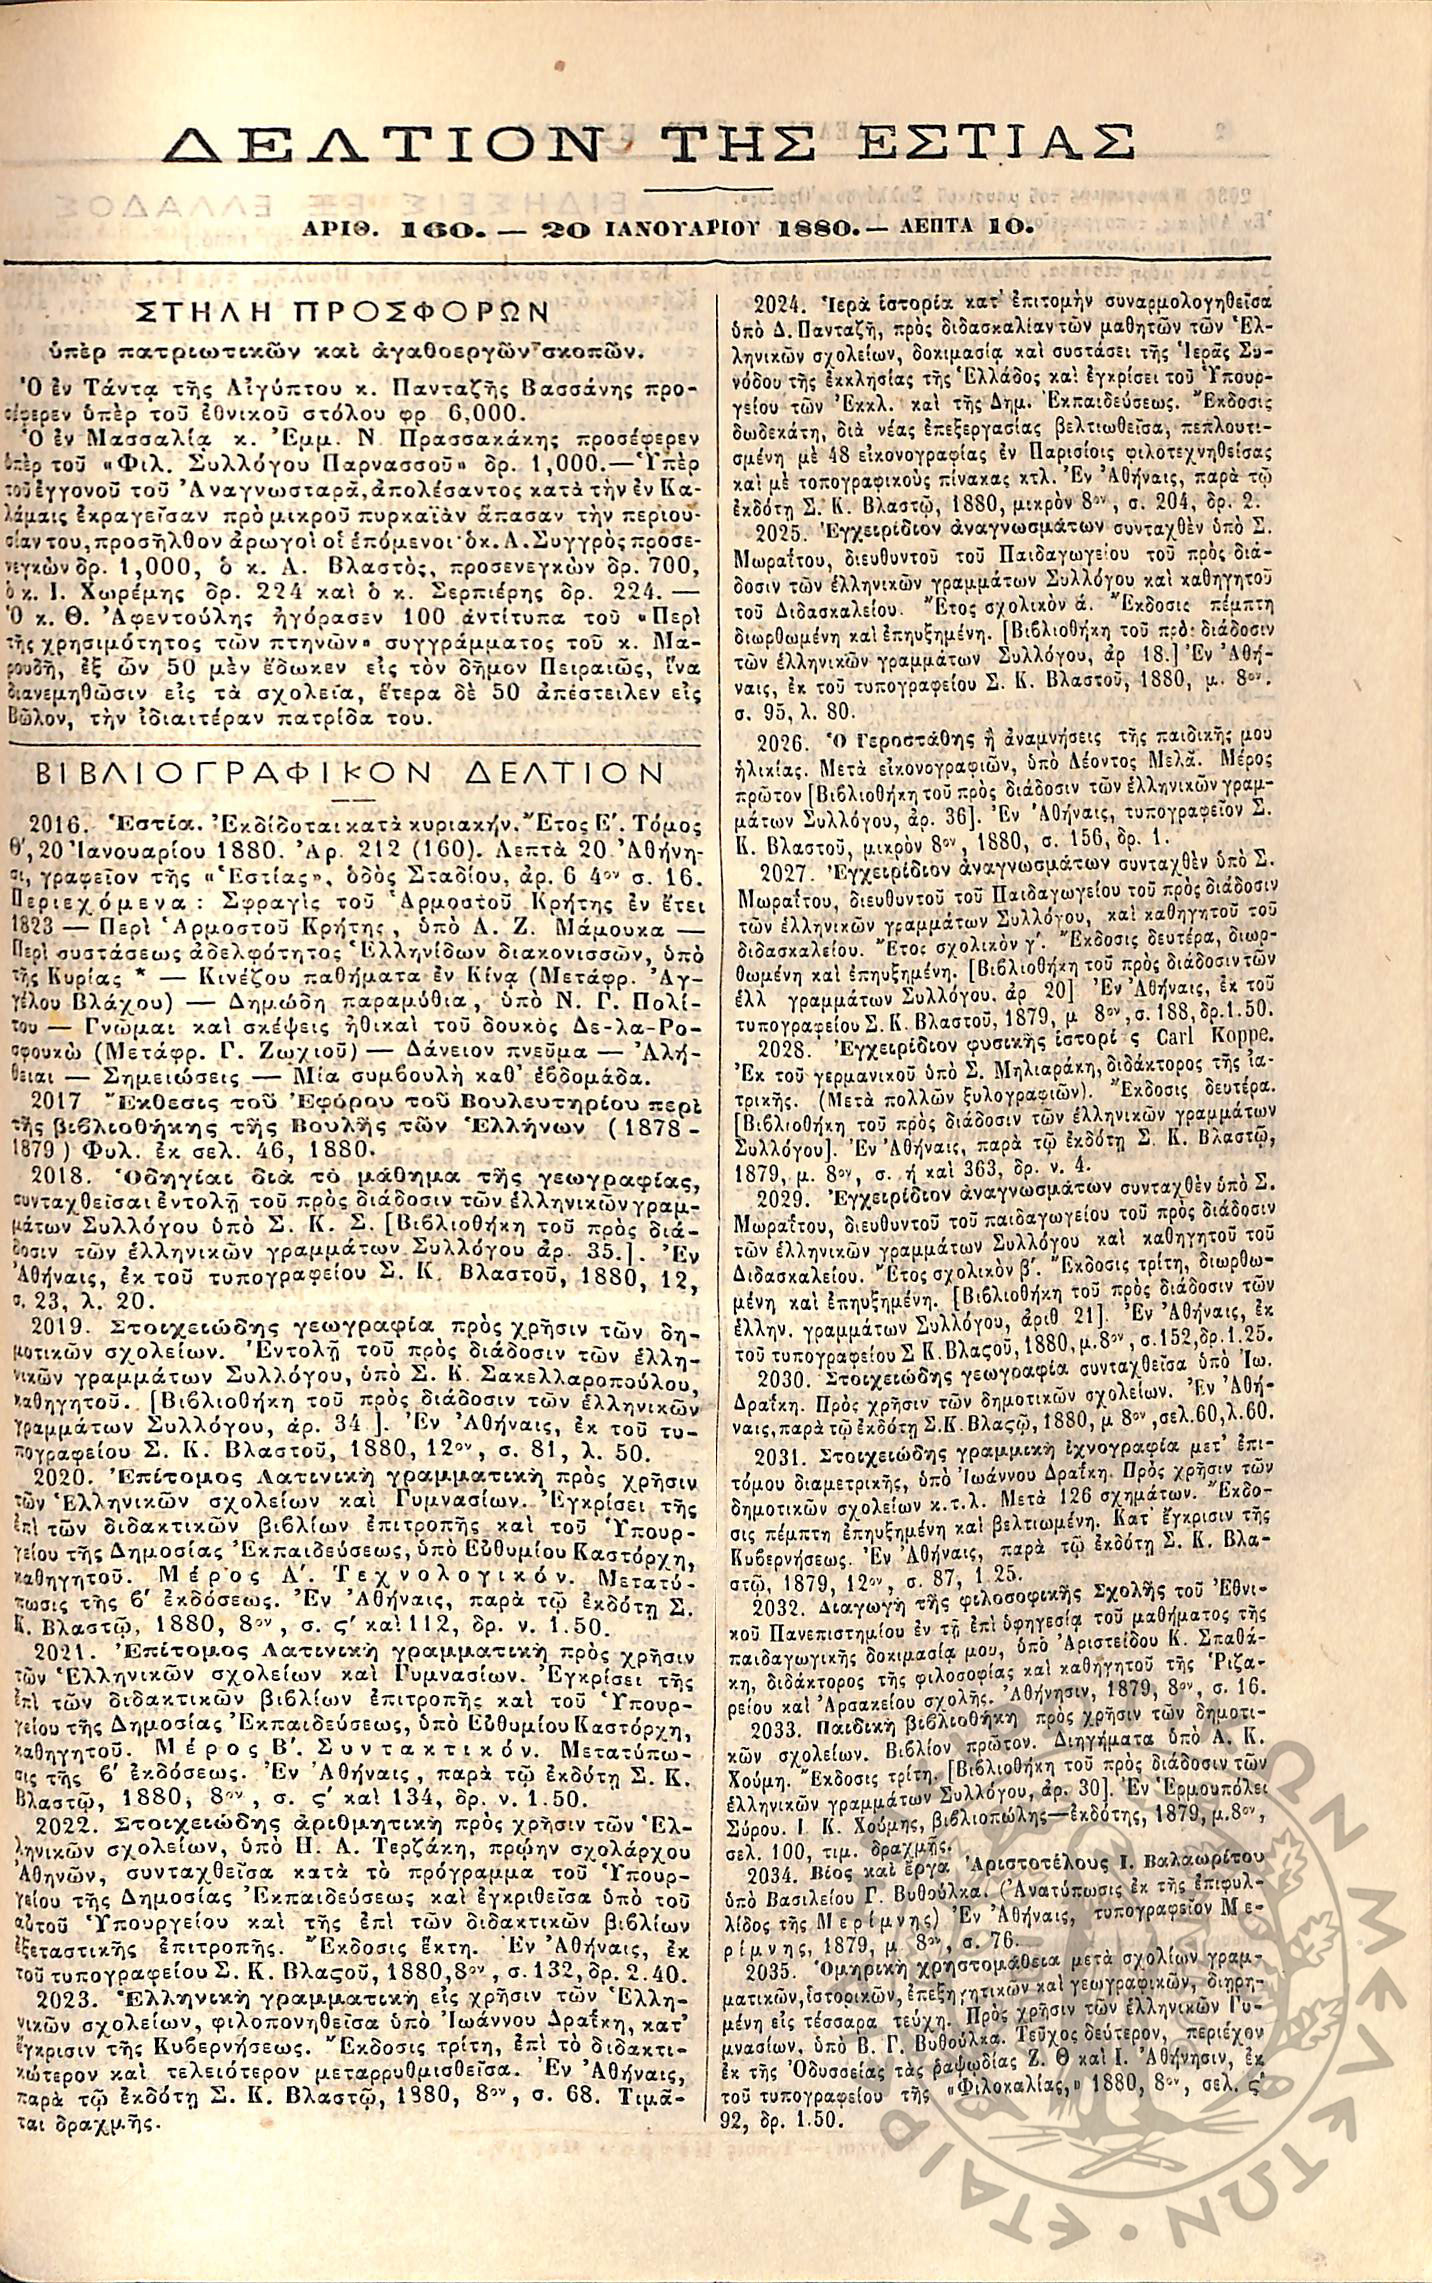 ΔΕΛΤΙΟΝ ΤΗΣ ΕΣΤΙΑΣ
ΑΡΙΘ. 160. — 20 ΙΑΝΟΥΑΡΙΟΥ 1880. — ΛΕΠΤΑ 10.
ΣΤΗΛΗ ΠΡΟΣΦΟΡΩΝ
ὑπὲρ πατριωτικῶν καὶ ἀγαθοεργῶν σκοπῶν.
Ὁ ἐν Τάντᾳ τῆς Αἰγύπτου κ. Πανταζῆς Βασσάνης προ-
σέφερεν ὑπὲρ τοῦ ἐθνικοῦ στόλου φρ 6,000.
Ὁ ἐν Μασσαλίᾳ κ. Ἐμμ. Ν Πρασσακάκης προσέφερεν
ὑπὲρ τοῦ «Φιλ. Συλλόγου Παρνασσοῦ» δρ. 1,000.—Ὑπὲρ
τοῦ ἐγγονοῦ τοῦ Ἀναγνωσταρᾶ, ἀπολέσαντος κατὰ τὴν ἐν Κα-
λάμαις ἐκραγεῖσαν πρὸ μικροῦ πυρκαϊὰν ἅπασαν τὴν περιου-
σίαν του, προσῆλθον ἀρωγοὶ οἱ ἑπόμενοι· ὁ κ. Α. Συγγρὸς προσε-
νεγκὼν δρ. 1,000, ὁ κ. Α. Βλαστὸς, προσενεγκὼν δρ. 700,
ὁ κ. Ι. Χωρέμης δρ. 224 καὶ ὁ κ. Σερπιέρης δρ. 224. —
Ὁ κ. Θ. Ἀφεντούλης ἠγόρασεν 100 ἀντίτυπα τοῦ «Περὶ
τῆς χρησιμότητος τῶν πτηνῶν» συγγράμματος τοῦ κ. Μα-
ρουδῆ, ἐξ ὧν 50 μὲν ἔδωκεν εἰς τὸν δῆμον Πειραιῶς, ἵνα
διανεμηθῶσιν εἰς τὰ σχολεῖα, ἕτερα δὲ 50 ἀπέστειλεν εἰς
Βῶλον, τὴν ἰδιαιτέραν πατρίδα του.
ΒΙΒΛΙΟΓΡΑΦΙΚΟΝ ΔΕΛΤΙΟΝ
2016. Ἑστία. Ἐκδίδοται κατὰ κυριακήν. Ἔτος Ε΄. Τόμος
Θ΄, 20 Ἰανουαρίου 1880. Ἀρ. 212 (160). Λεπτὰ 20 Ἀθήνη-
σι, γραφεῖον τῆς «Ἑστίας», ὁδὸς Σταδίου, ἀρ. 6 4ον σ. 16.
Περιεχόμενα: Σφραγὶς τοῦ Ἁρμοστοῦ Κρήτης ἐν ἔτει
1823 — Περὶ Ἁρμοστοῦ Κρήτης, ὑπὸ Α. Ζ. Μάμουκα —
Περὶ συστάσεως ἀδελφότητος Ἑλληνίδων διακονισσῶν, ὑπὸ
τῆς Κυρίας * — Κινέζου παθήματα ἐν Κίνᾳ (Μετάφρ. Ἀγ-
γέλου Βλάχου) — Δημώδη παραμύθια, ὑπὸ Ν. Γ. Πολί-
του — Γνῶμαι καὶ σκέψεις ἠθικαὶ τοῦ δουκὸς Δε-λα-Ρο-
σφουκὼ (Μετάφρ. Γ. Ζωχιοῦ) — Δάνειον πνεῦμα — Ἀλή-
θειαι — Σημειώσεις — Μία συμβουλὴ καθ' ἑβδομάδα.
2017 Ἔκθεσις τοῦ Ἐφόρου τοῦ Βουλευτηρίου περὶ
τῆς βιβλιοθήκης τῆς Βουλῆς τῶν Ἑλλήνων (1878-
1879) Φυλ. ἐκ σελ. 46, 1880.
2018. Ὁδηγίαι διὰ τὸ μάθημα τῆς γεωγραφίας,
συνταχθεῖσαι ἐντολῇ τοῦ πρὸς διάδοσιν τῶν ἑλληνικῶν γραμ-
μάτων Συλλόγου ὑπὸ Σ. Κ. Σ. [Βιβλιοθήκη τοῦ πρὸς διά-
δοσιν τῶν ἑλληνικῶν γραμμάτων Συλλόγου ἀρ. 35.]. Ἐν
Ἀθήναις, ἐκ τοῦ τυπογραφείου Σ. Κ. Βλαστοῦ, 1880, 12,
σ. 23, λ. 20.
2019. Στοιχειώδης γεωγραφία πρὸς χρῆσιν τῶν δη-
μοτικῶν σχολείων. Ἐντολῇ τοῦ πρὸς διάδοσιν τῶν ἑλλη-
νικῶν γραμμάτων Συλλόγου, ὑπὸ Σ. Κ. Σακελλαροπούλου,
καθηγητοῦ. [Βιβλιοθήκη τοῦ πρὸς διάδοσιν τῶν ἑλληνικῶν
γραμμάτων Συλλόγου, ἀρ. 34.]. Ἐν Ἀθήναις, ἐκ τοῦ τυ-
πογραφείου Σ. Κ. Βλαστοῦ, 1880, 12ον, σ. 81, λ. 50.
2020. Ἐπίτομος Λατινικὴ γραμματικὴ πρὸς χρῆσιν
τῶν Ἑλληνικῶν σχολείων καὶ Γυμνασίων. Ἐγκρίσει τῆς
ἐπὶ τῶν διδακτικῶν βιβλίων ἐπιτροπῆς καὶ τοῦ Ὑπουρ-
γείου τῆς Δημοσίας Ἐκπαιδεύσεως, ὑπὸ Εὐθυμίου Καστόρχη,
καθηγητοῦ. Μέρος Α΄. Τεχνολογικόν. Μετατύ-
πωσις τῆς β΄ ἐκδόσεως. Ἐν Ἀθήναις, παρὰ τῷ ἐκδότῃ Σ.
Κ. Βλαστῷ, 1880, 8ον, σ. ς΄ καὶ 112, δρ. ν. 1.50.
2021. Ἐπίτομος Λατινικὴ γραμματικὴ πρὸς χρῆσιν
τῶν Ἑλληνικῶν σχολείων καὶ Γυμνασίων. Ἐγκρίσει τῆς
ἐπὶ τῶν διδακτικῶν βιβλίων ἐπιτροπῆς καὶ τοῦ Ὑπουρ-
γείου τῆς Δημοσίας Ἐκπαιδεύσεως, ὑπὸ Εὐθυμίου Καστόρχη,
καθηγητοῦ. Μέρος Β΄. Συντακτικόν. Μετατύπω-
σις τῆς β΄ ἐκδόσεως. Ἐν Ἀθήναις, παρὰ τῷ ἐκδότῃ Σ. Κ.
Βλαστῷ, 1880, 8ον, σ. ς΄ καὶ 134, δρ. ν. 1.50.
2022. Στοιχειώδης ἀριθμητικὴ πρὸς χρῆσιν τῶν Ἑλ-
ληνικῶν σχολείων, ὑπὸ Π. Α. Τερζάκη, πρῴην σχολάρχου
Ἀθηνῶν, συνταχθεῖσα κατὰ τὸ πρόγραμμα τοῦ Ὑπουρ-
γείου τῆς Δημοσίας Ἐκπαιδεύσεως καὶ ἐγκριθεῖσα ὑπὸ τοῦ
αὐτοῦ Ὑπουργείου καὶ τῆς ἐπὶ τῶν διδακτικῶν βιβλίων
ἐξεταστικῆς ἐπιτροπῆς. Ἔκδοσις ἕκτη. Ἐν Ἀθήναις, ἐκ
τοῦ τυπογραφείου Σ. Κ. Βλαστοῦ, 1880, 8ον, σ. 132, δρ. 2.40.
2023. Ἑλληνικὴ γραμματικὴ εἰς χρῆσιν τῶν Ἑλλη-
νικῶν σχολείων, φιλοπονηθεῖσα ὑπὸ Ἰωάννου Δραΐκη, κατ'
ἔγκρισιν τῆς Κυβερνήσεως. Ἔκδοσις τρίτη, ἐπὶ τὸ διδακτι-
κώτερον καὶ τελειότερον μεταρρυθμισθεῖσα. Ἐν Ἀθήναις,
παρὰ τῷ ἐκδότῃ Σ. Κ. Βλαστῷ, 1880, 8ον, σ. 68. Τιμᾶ-
ται δραχμῆς.
2024. Ἱερὰ ἱστορία κατ' ἐπιτομὴν συναρμολογηθεῖσα
ὑπὸ Δ. Πανταζῆ, πρὸς διδασκαλίαν τῶν μαθητῶν τῶν Ἑλ-
ληνικῶν σχολείων, δοκιμασίᾳ καὶ συστάσει τῆς Ἱερᾶς Συ-
νόδου τῆς ἐκκλησίας τῆς Ἑλλάδος καὶ ἐγκρίσει τοῦ Ὑπουρ-
γείου τῶν Ἐκκλ. καὶ τῆς Δημ. Ἐκπαιδεύσεως. Ἔκδοσις
δωδεκάτη, διὰ νέας ἐπεξεργασίας βελτιωθεῖσα, πεπλουτι-
σμένη μὲ 48 εἰκονογραφίας ἐν Παρισίοις φιλοτεχνηθείσας
καὶ μὲ τοπογραφικοὺς πίνακας κτλ. Ἐν Ἀθήναις, παρὰ τῷ
ἐκδότῃ Σ. Κ. Βλαστῷ, 1880, μικρὸν 8ον, σ. 204, δρ. 2.
2025. Ἐγχειρίδιον ἀναγνωσμάτων συνταχθὲν ὑπὸ Σ.
Μωραΐτου, διευθυντοῦ τοῦ Παιδαγωγείου τοῦ πρὸς διά-
δοσιν τῶν ἑλληνικῶν γραμμάτων Συλλόγου καὶ καθηγητοῦ
τοῦ Διδασκαλείου. Ἔτος σχολικὸν ά. Ἔκδοσις πέμπτη
διωρθωμένη καὶ ἐπηυξημένη. [Βιβλιοθήκη τοῦ πρὸς διάδοσιν
τῶν ἑλληνικῶν γραμμάτων Συλλόγου, ἀρ 18.] Ἐν Ἀθή-
ναις, ἐκ τοῦ τυπογραφείου Σ. Κ. Βλαστοῦ, 1880, μ. 8ον.
σ. 95, λ. 80.
2026. Ὁ Γεροστάθης ἢ ἀναμνήσεις τῆς παιδικῆς μου
ἡλικίας. Μετὰ εἰκονογραφιῶν, ὑπὸ Λέοντος Μελᾶ. Μέρος
πρῶτον [Βιβλιοθήκη τοῦ πρὸς διάδοσιν τῶν ἑλληνικῶν γραμ-
μάτων Συλλόγου, ἀρ. 36]. Ἐν Ἀθήναις, τυπογραφεῖον Σ.
Κ. Βλαστοῦ, μικρὸν 8ον, 1880, σ. 156, δρ. 1.
2027. Ἐγχειρίδιον ἀναγνωσμάτων συνταχθὲν ὑπὸ Σ.
Μωραΐτου, διευθυντοῦ τοῦ Παιδαγωγείου τοῦ πρὸς διάδοσιν
τῶν ἑλληνικῶν γραμμάτων Συλλόγου, καὶ καθηγητοῦ τοῦ
διδασκαλείου. Ἔτος σχολικὸν γ΄. Ἔκδοσις δευτέρα, διωρ-
θωμένη καὶ ἐπηυξημένη. [Βιβλιοθήκη τοῦ πρὸς διάδοσιν τῶν
ἑλλ γραμμάτων Συλλόγου. ἀρ 20] Ἐν Ἀθήναις, ἐκ τοῦ
τυπογραφείου Σ. Κ. Βλαστοῦ, 1879, μ 8ον, σ. 188, δρ. 1.50.
2028. Ἐγχειρίδιον φυσικῆς ἱστορί ς Carl Koppe.
Ἐκ τοῦ γερμανικοῦ ὑπὸ Σ. Μηλιαράκη, διδάκτορος τῆς ἰα-
τρικῆς. (Μετὰ πολλῶν ξυλογραφιῶν). Ἔκδοσις δευτέρα.
[Βιβλιοθήκη τοῦ πρὸς διάδοσιν τῶν ἑλληνικῶν γραμμάτων
Συλλόγου]. Ἐν Ἀθήναις, παρὰ τῷ ἐκδότῃ Σ. Κ. Βλαστῷ,
1879, μ. 8ον, σ. ή καὶ 363, δρ. ν. 4.
2029. Ἐγχειρίδιον ἀναγνωσμάτων συνταχθὲν ὑπὸ Σ.
Μωραΐτου, διευθυντοῦ τοῦ παιδαγωγείου τοῦ πρὸς διάδοσιν
τῶν ἑλληνικῶν γραμμάτων Συλλόγου καὶ καθηγητοῦ τοῦ
Διδασκαλείου. Ἔτος σχολικὸν β΄. Ἔκδοσις τρίτη, διωρθω-
μένη καὶ ἐπηυξημένη. [Βιβλιοθήκη τοῦ πρὸς διάδοσιν τῶν
ἑλλην. γραμμάτων Συλλόγου, ἀριθ 21]. Ἐν Ἀθήναις, ἐκ
τοῦ τυπογραφείου Σ Κ. Βλαστοῦ, 1880, μ. 8ον, σ. 152, δρ. 1.25.
2030. Στοιχειώδης γεωγραφία συνταχθεῖσα ὑπὸ Ἰω.
Δραΐκη. Πρὸς χρῆσιν τῶν δημοτικῶν σχολείων. Ἐν Ἀθή-
ναις, παρὰ τῷ ἐκδότῃ Σ. Κ. Βλαστῷ, 1880, μ 8ον, σελ. 60, λ. 60.
2031. Στοιχειώδης γραμμικὴ ἰχνογραφία μετ' ἐπι-
τόμου διαμετρικῆς, ὑπὸ Ἰωάννου Δραΐκη. Πρὸς χρῆσιν τῶν
δημοτικῶν σχολείων κ.τ.λ. Μετὰ 126 σχημάτων. Ἔκδο-
σις πέμπτη ἐπηυξημένη καὶ βελτιωμένη. Κατ' ἔγκρισιν τῆς
Κυβερνήσεως. Ἐν Ἀθήναις, παρὰ τῷ ἐκδότῃ Σ. Κ. Βλα-
στῷ, 1879, 12ον, σ. 87, 1 25.
2032. Διαγωγὴ τῆς φιλοσοφικῆς Σχολῆς τοῦ Ἐθνι-
κοῦ Πανεπιστημίου ἐν τῇ ἐπὶ ὑφηγεσίᾳ τοῦ μαθήματος τῆς
παιδαγωγικῆς δοκιμασίᾳ μου, ὑπὸ Ἀριστείδου Κ. Σπαθά-
κη, διδάκτορος τῆς φιλοσοφίας καὶ καθηγητοῦ τῆς Ῥιζα-
ρείου καὶ Ἀρσακείου σχολῆς. Ἀθήνησιν, 1879, 8ον, σ. 16.
2033. Παιδικὴ βιβλιοθήκη πρὸς χρῆσιν τῶν δημοτι-
κῶν σχολείων. Βιβλίον πρῶτον. Διηγήματα ὑπὸ Α. Κ.
Χούμη. Ἔκδοσις τρίτη. [Βιβλιοθήκη τοῦ πρὸς διάδοσιν τῶν
ἑλληνικῶν γραμμάτων Συλλόγου, ἀρ. 30]. Ἐν Ἑρμουπόλει
Σύρου. Ι. Κ. Χούμης, βιβλιοπώλης—ἐκδότης, 1879, μ. 8ον,
σελ. 100, τιμ. δραχμῆς.
2034. Βίος καὶ ἔργα Ἀριστοτέλους Ι. Βαλαωρίτου
ὑπὸ Βασιλείου Γ. Βυθούλκα. (Ἀνατύπωσις ἐκ τῆς ἐπιφυλ-
λίδος τῆς Μερίμνης) Ἐν Ἀθήναις, τυπογραφεῖον Με-
ρίμνης, 1879, μ 8ον, σ. 76.
2035. Ὁμηρικὴ χρηστομάθεια μετὰ σχολίων γραμ-
ματικῶν, ἱστορικῶν, ἐπεξηγητικῶν καὶ γεωγραφικῶν, διῃρη-
μένη εἰς τέσσαρα τεύχη. Πρὸς χρῆσιν τῶν ἑλληνικῶν Γυ-
μνασίων, ὑπὸ Β. Γ. Βυθούλκα. Τεῦχος δεύτερον, περιέχον
ἐκ τῆς Ὀδυσσείας τὰς ῥαψῳδίας Ζ. Θ καὶ Ι. Ἀθήνησιν, ἐκ
τοῦ τυπογραφείου τῆς «Φιλοκαλίας,» 1880, 8ον, σελ. ς΄
92, δρ. 1.50.